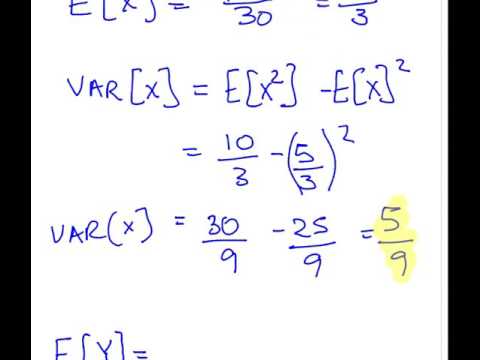 E[X] = /30 = /3
VAR[X] = E[X²] - E[X]²
= 10/3 - (5/3)²
VAR(X) = 30/9 - 25/9 = 5/9
E[Y] =